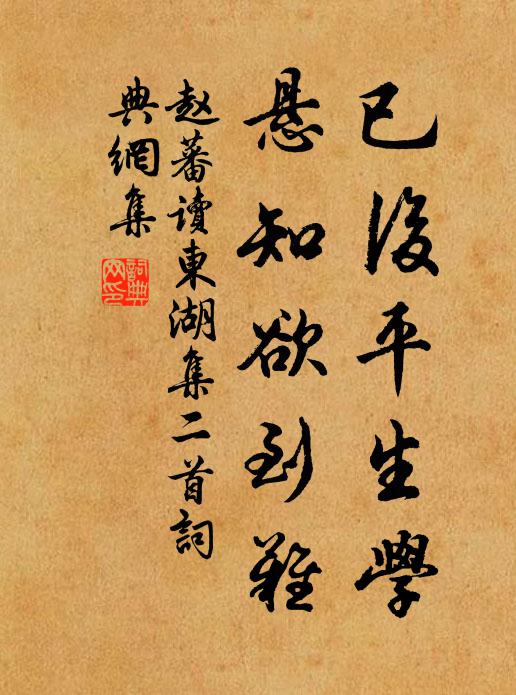 已後平生學
悬知欲到難
赵蕃讀東湖集二首詞
典網集
詞典
网印